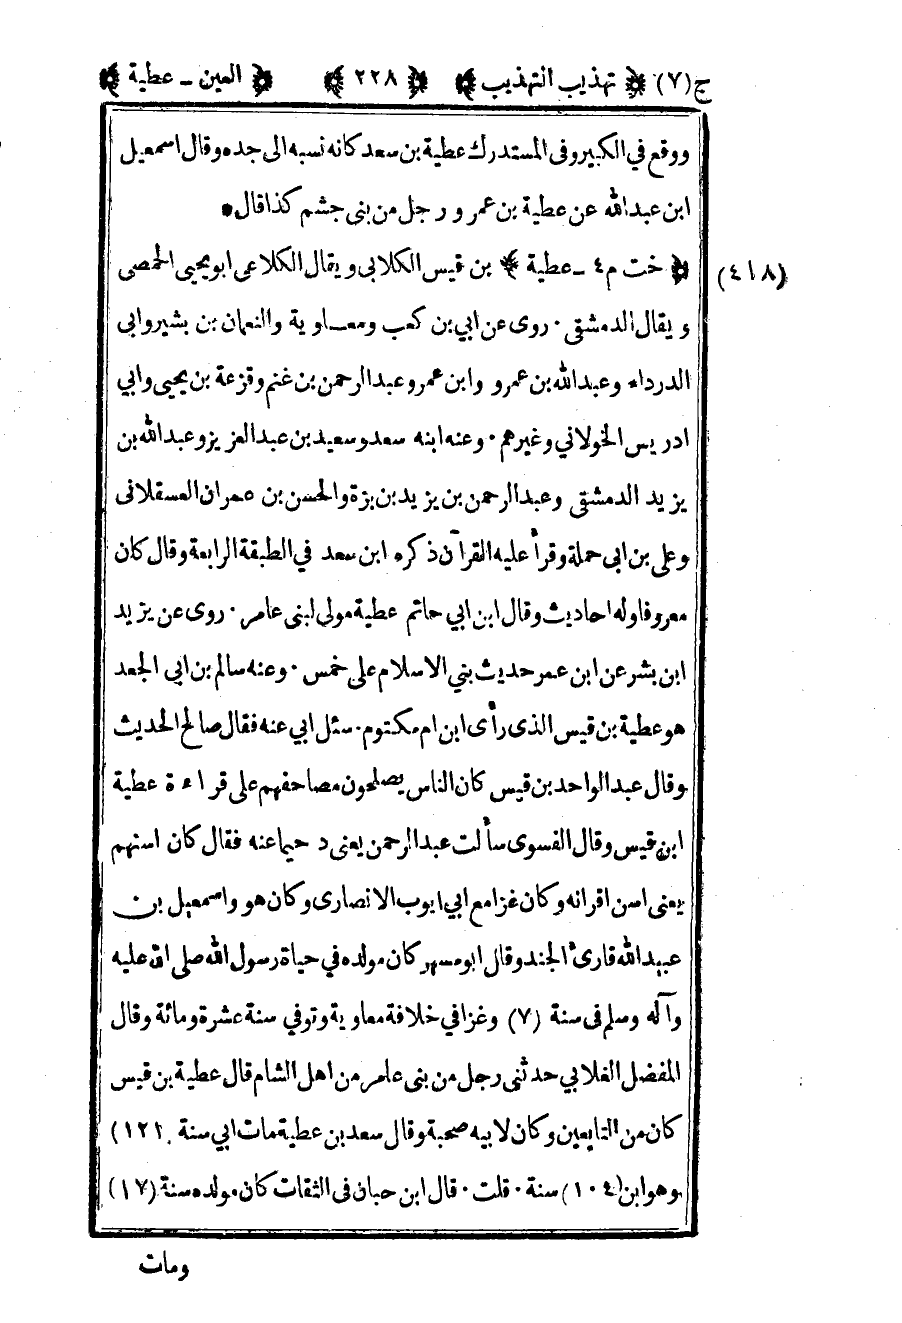 ج(٧) ﴿ تهذيب التهذيب ﴾ ﴿ ٢٢٨ ﴾ ﴿ العين ـ عطية ﴾
ووقع في الكبير وفى المستدرك عطية بن سعد كانه نسبه الى جده وقال اسمعيل
ابن عبدالله عن عطية بن عمرو رجل من بنى جشم كذا قال *
(٤١٨) ﴿ خت م٤ ـ عطية ﴾ بن قيس الكلابي ويقال الكلاعي ابو يحيى الحمصى
ويقال الدمشقى · روى عن ابي بن كعب ومعاوية والنعمان بن بشير وابى
الدرداء وعبدالله بن عمرو وابن عمر وعبدالرحمن بن غنم وقزعة بن يحيى وابي
ادريس الخولاني وغيرهم · وعنه ابنه سعد وسعيد بن عبدالعزيز وعبدالله بن
يزيد الدمشقى وعبدالرحمن بن يزيد بن بزة والحسن بن عمران العسقلانى
وعلى بن ابى حملة وقرأ عليه القرآن ذكره ابن سعد في الطبقة الرابعة وقال كان
معروفا وله احاديث وقال ابن ابي حاتم عطية مولى لبنى عامر · روى عن يزيد
ابن بشر عن ابن عمر حديث بني الاسلام على خمس · وعنه سالم بن ابى الجعد
هو عطية بن قيس الذى رأى ابن ام مكتوم · سئل ابي عنه فقال صالح الحديث
وقال عبدالواحد بن قيس كان الناس يصلحون مصاحفهم على قراءة عطية
ابن قيس وقال الفسوى سألت عبدالرحمن يعنى دحيما عنه فقال كان اسنهم
يعنى اسن اقرانه وكان غزا مع ابي ايوب الانصارى وكان هو واسمعيل بن
عبيدالله قارئ الجند وقال ابو مسهر كان مولده في حياة رسول الله صلى الله عليه
وآله وسلم فى سنة (٧) وغزا في خلافة معاوية وتوفي سنة عشرة ومائة وقال
المفضل الغلابي حدثنى رجل من بنى عامر من اهل الشام قال عطية بن قيس
كان من التابعين وكان لابيه صحبة وقال سعد بن عطية مات ابي سنة (١٢١)
وهو ابن (١٠٤) سنة · قلت · قال ابن حبان فى الثقات كان مولده سنة (١٧)
ومات